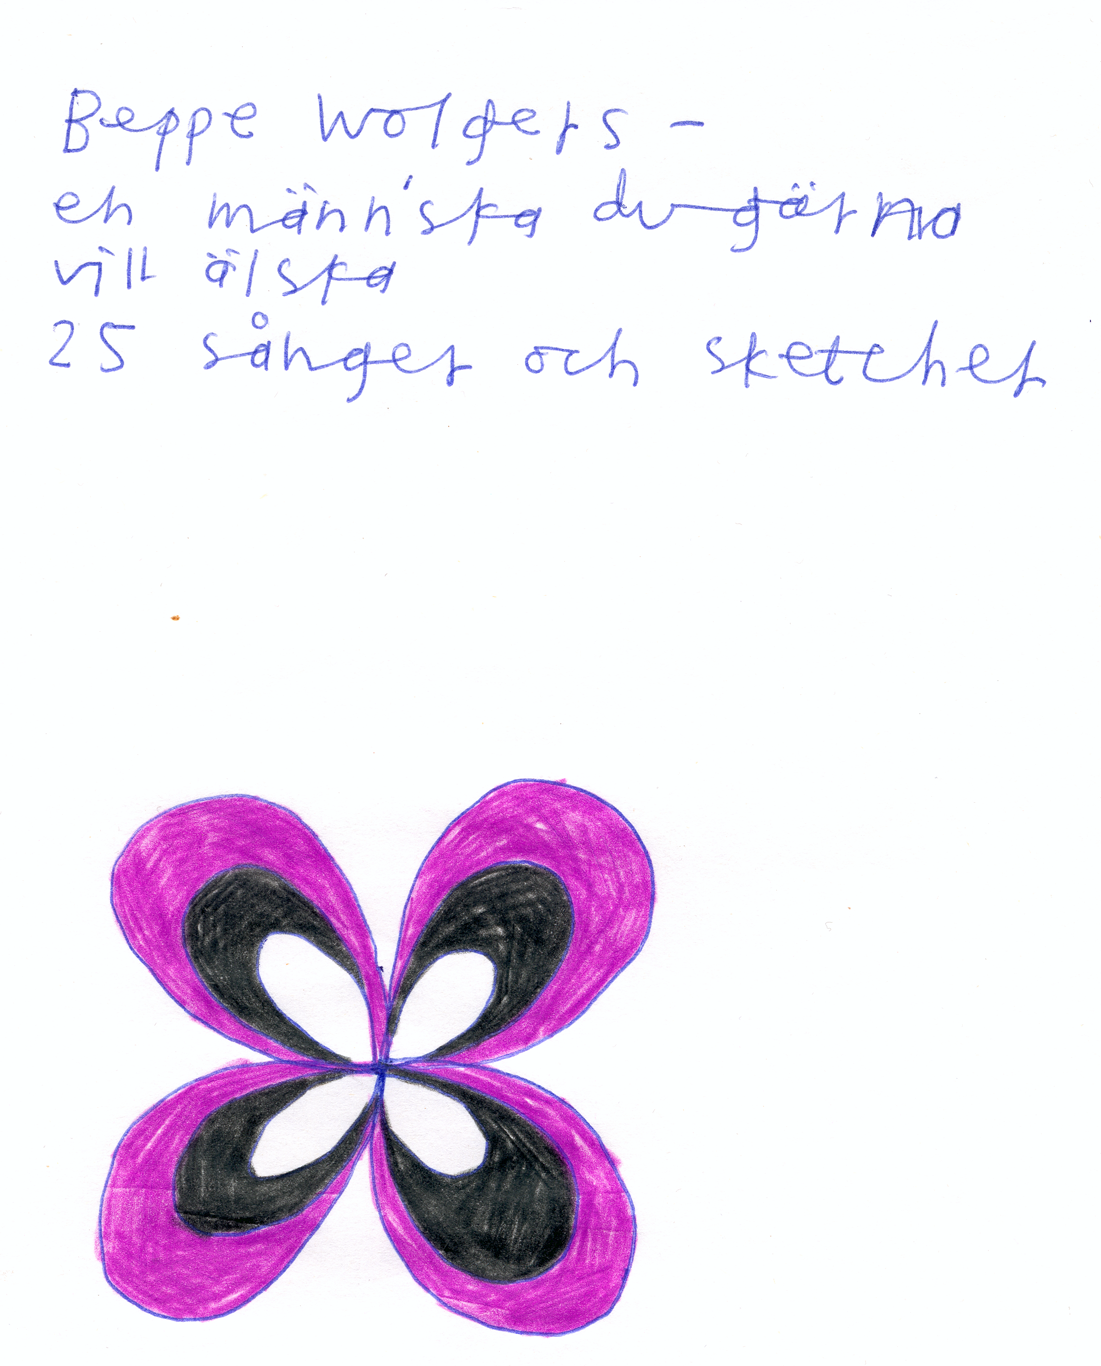 Beppe Wolgers -
en männ'ska du gärna
vill älska
25 sånger och sketcher